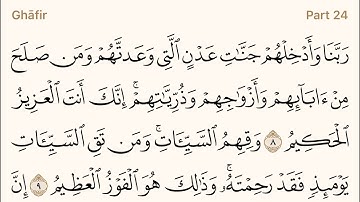 Ghāfir Part 24
رَبَّنَا وَأَدْخِلْهُمْ جَنَّٰتِ عَدْنٍ ٱلَّتِى وَعَدتَّهُمْ وَمَن صَلَحَ
مِنْ ءَابَآئِهِمْ وَأَزْوَٰجِهِمْ وَذُرِّيَّٰتِهِمْ ۚ إِنَّكَ أَنتَ ٱلْعَزِيزُ
ٱلْحَكِيمُ ٨ وَقِهِمُ ٱلسَّيِّـَٔاتِ ۚ وَمَن تَقِ ٱلسَّيِّـَٔاتِ
يَوْمَئِذٍ فَقَدْ رَحِمْتَهُۥ ۚ وَذَٰلِكَ هُوَ ٱلْفَوْزُ ٱلْعَظِيمُ ٩ إِنَّ